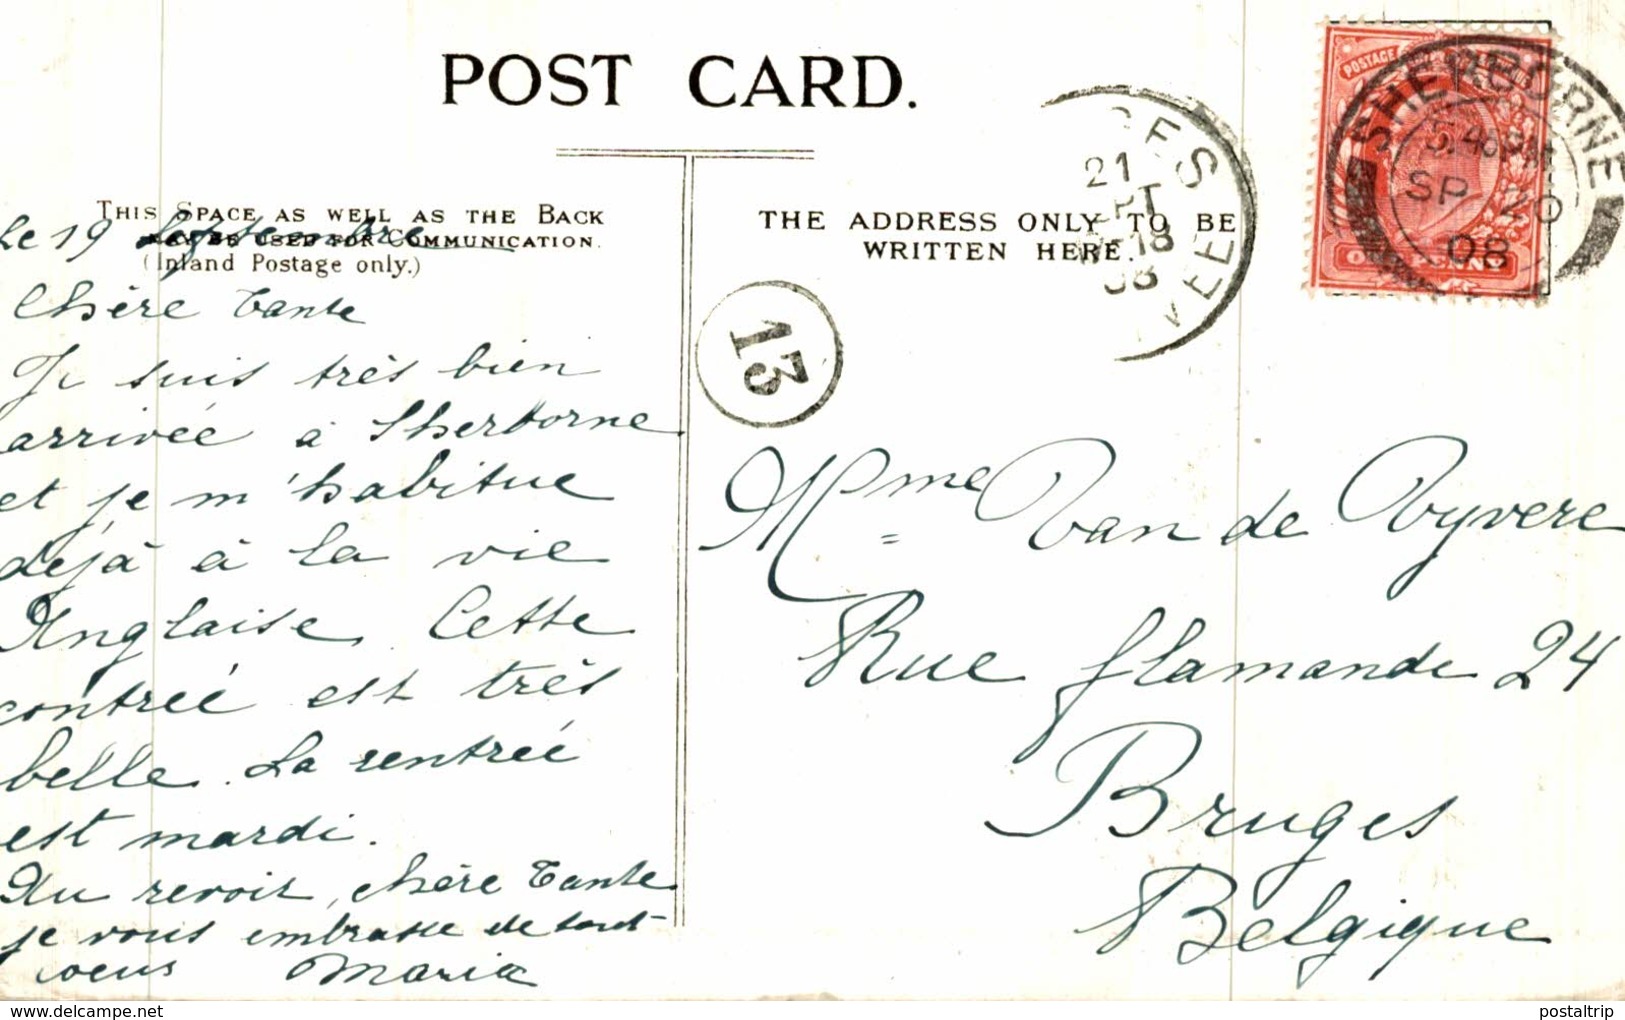 POST CARD.
THIS SPACE AS WELL AS THE BACK
MAY BE USED FOR COMMUNICATION.
(Inland Postage only.)
THE ADDRESS ONLY TO BE
WRITTEN HERE.
Le 19 septembre
Chère Tante
Je suis très bien
arrivée à Sherborne
et je m'habitue
déjà à la vie
Anglaise. Cette
contrée est très
belle. La rentrée
est mardi.
Au revoir, chère Tante
je vous embrasse de tout
coeur Maria
Mme Van de Vyvere
Rue flamande 24
Bruges
Belgique
POSTAGE
ONE PENNY
SHERBORNE
5.40PM
SP 20
08
21
SEPT
18
08
13
www.delcampe.net
postaltrip